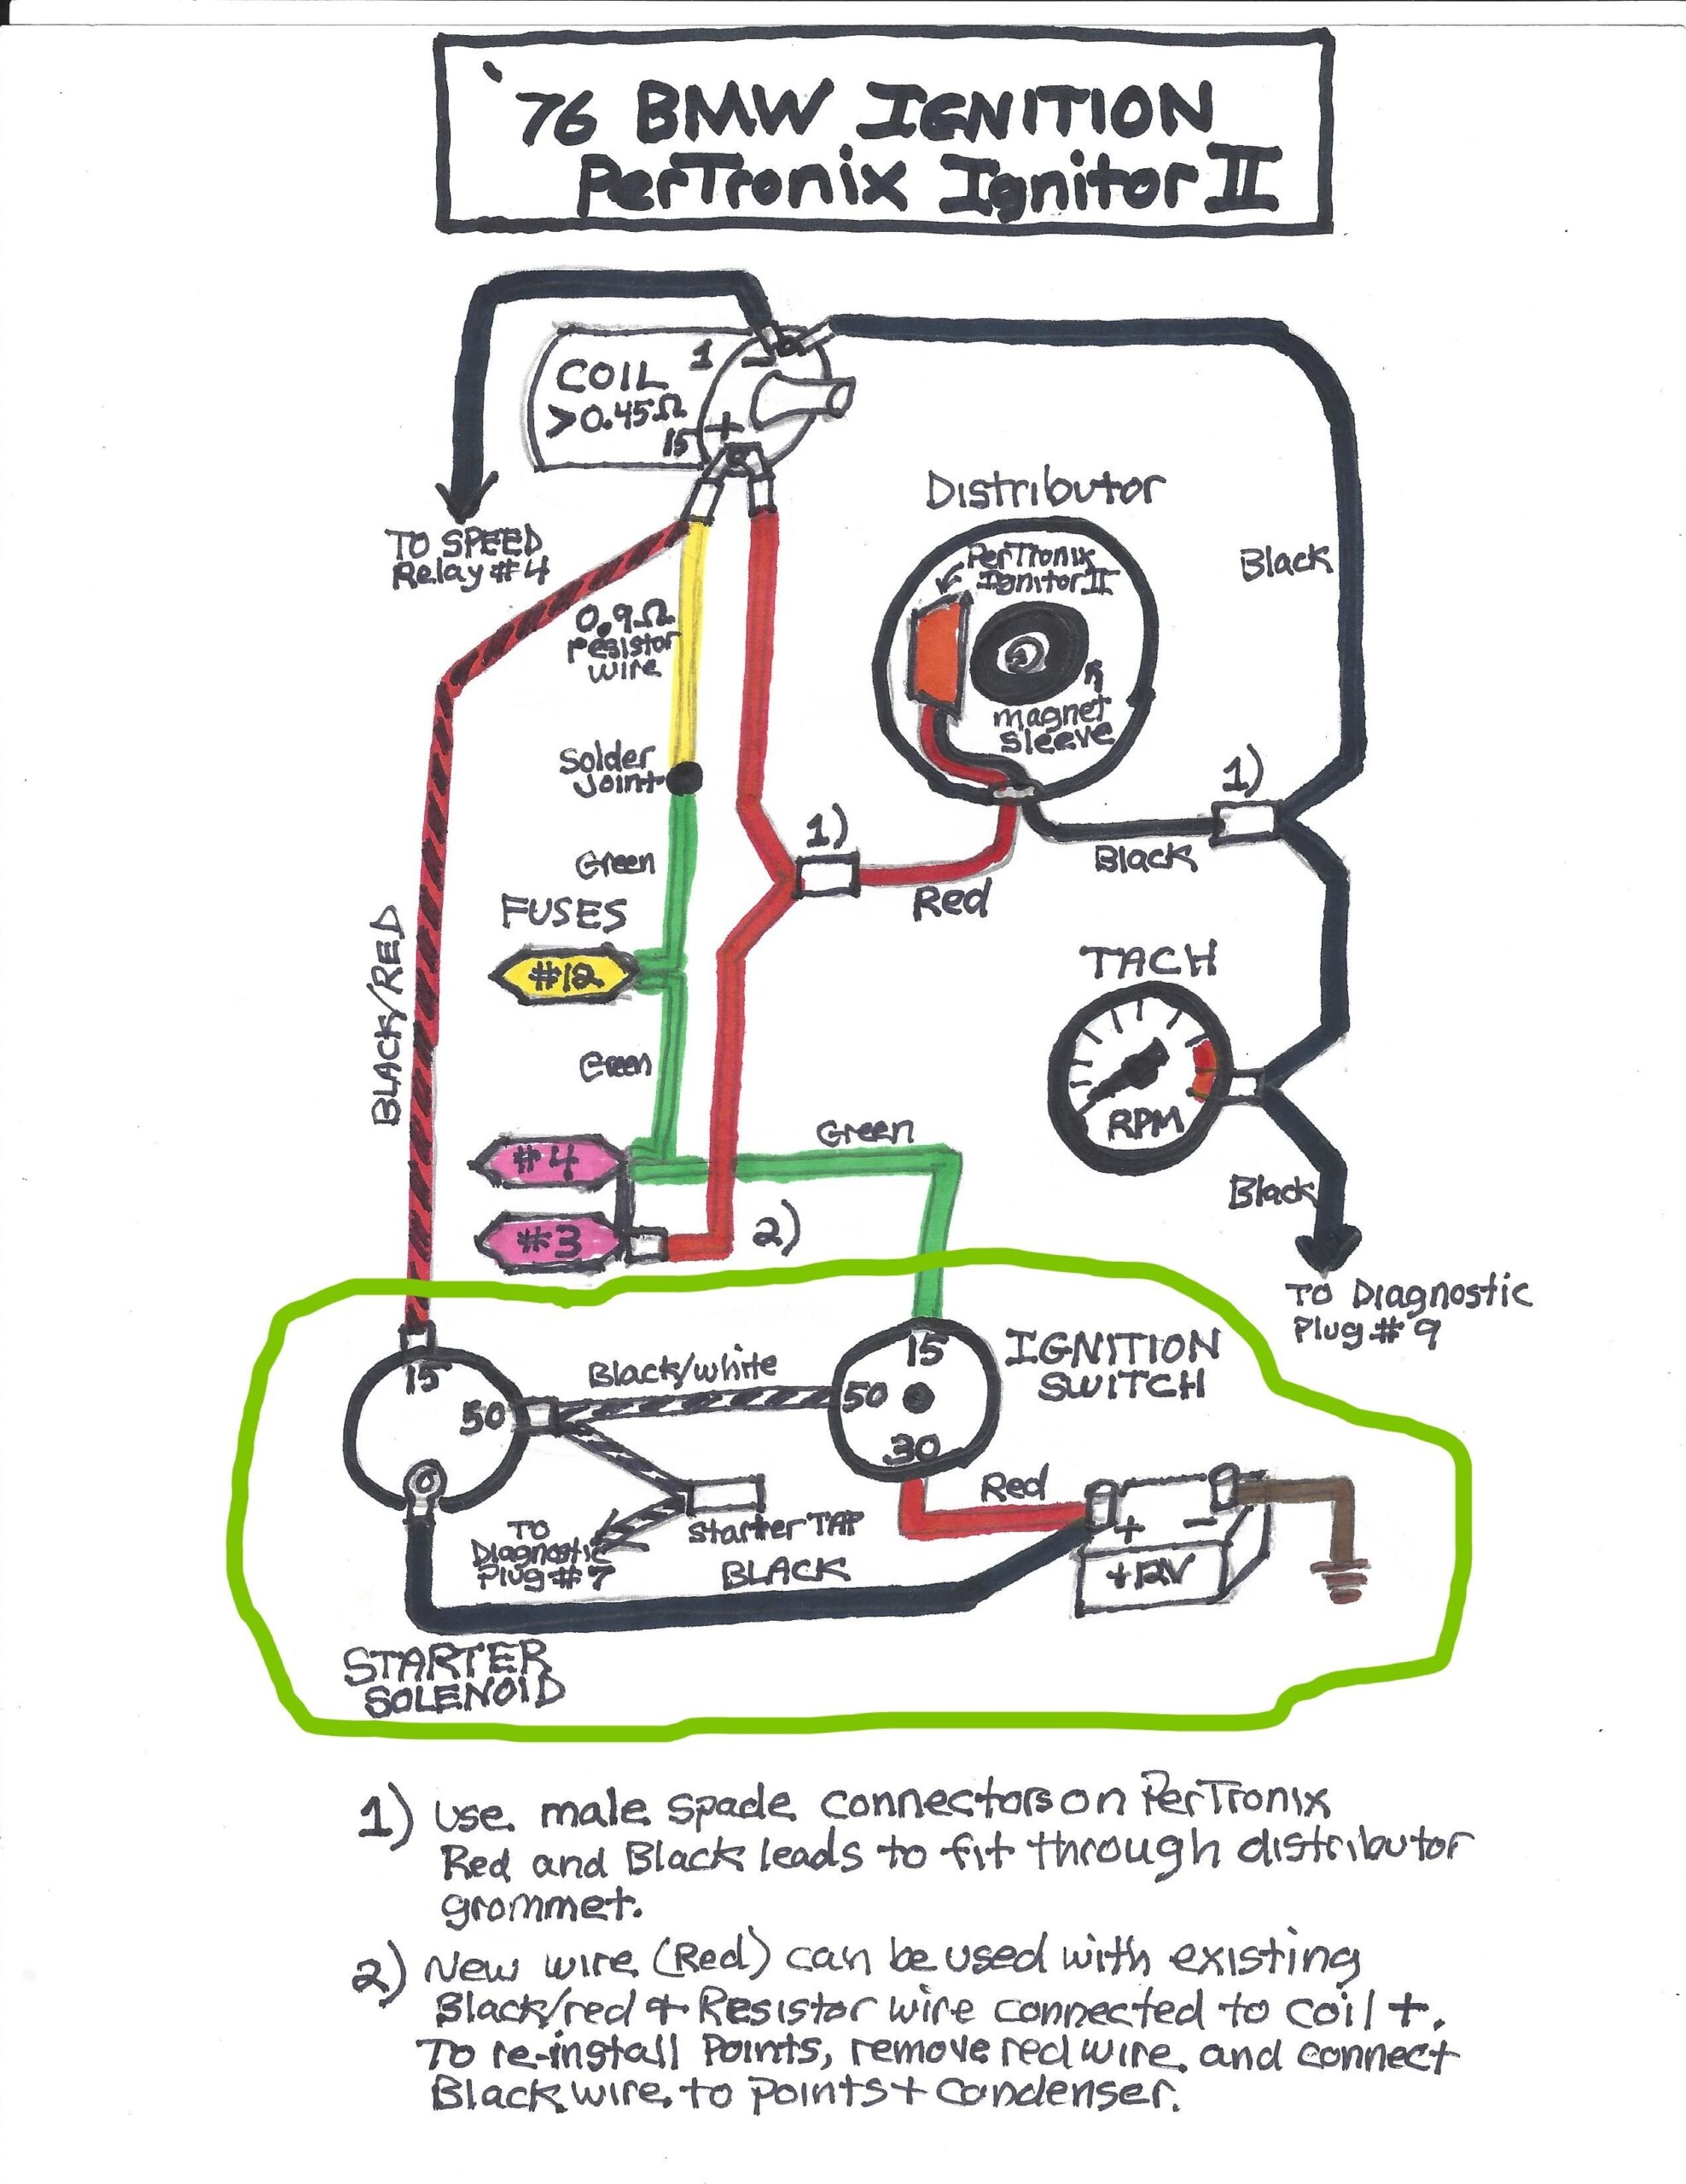 '76 BMW IGNITION
PerTronix Ignitor II
COIL
>0.45Ω
1
-
+
15
TO SPEED
Relay #4
Distributor
PerTronix
Ignitor II
magnet
sleeve
Black
0.9Ω
resistor
wire
Solder
Joint
1)
1)
Black
Red
Green
FUSES
#12
BLACK/RED
TACH
RPM
Green
Green
#4
#3
2)
Black
TO Diagnostic
Plug #9
15
50
Black/white
15
50
30
IGNITION
SWITCH
Red
+
-
+12V
Starter TAP
TO
Diagnostic
Plug #7
BLACK
STARTER
SOLENOID
1) Use male spade connectors on PerTronix
Red and Black leads to fit through distributor
grommet.
2) New wire (Red) can be used with existing
Black/red + Resistor wire connected to coil +.
To re-install Points, remove red wire and connect
Black wire to points + Condenser.